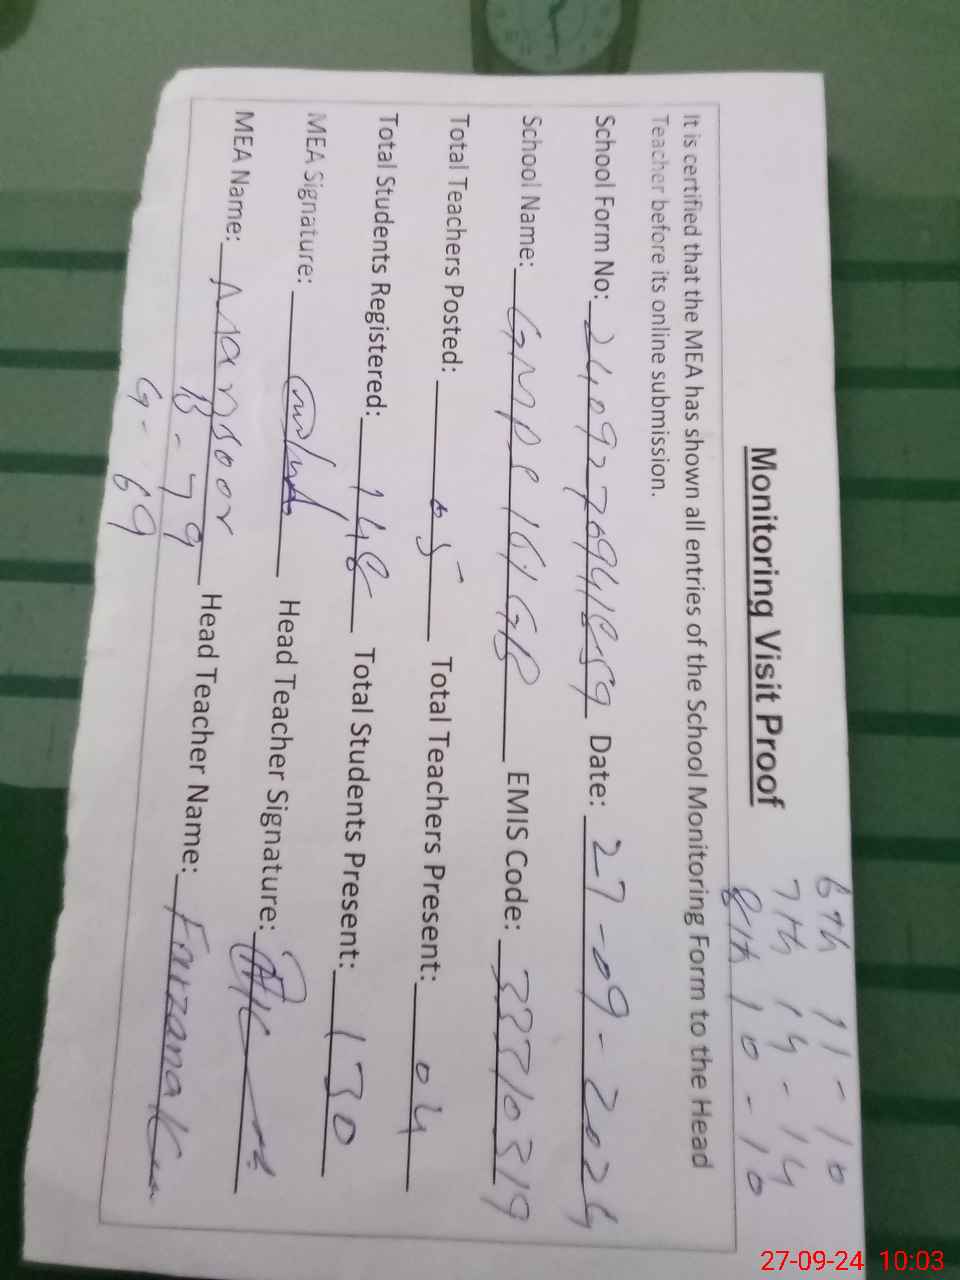 6th 11 - 10
7th 14 - 14
8th 10 - 10
Monitoring Visit Proof
It is certified that the MEA has shown all entries of the School Monitoring Form to the Head
Teacher before its online submission.
School Form No: Date: 27-09-2024
School Name: EMIS Code: 33710319
Total Teachers Posted: 05 Total Teachers Present: 04
Total Students Registered: 148 Total Students Present: 130
MEA Signature: Head Teacher Signature:
MEA Name: Mansoor Head Teacher Name: Farzana
B - 79
G - 69
27-09-24 10:03